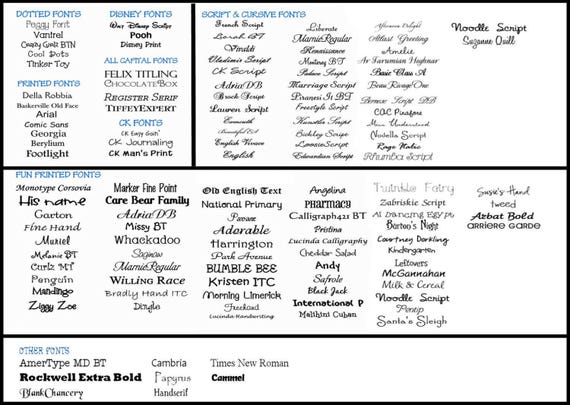 DOTTED FONTS
Peggy Font
Vantrel
Crazy Girlz BTN
Cool Dots
Tinker Toy
PRINTED FONTS
Della Robbia
Baskerville Old Face
Arial
Comic Sans
Georgia
Berylium
Footlight
DISNEY FONTS
Walt Disney Script
Pooh
Disney Print
ALL CAPITAL FONTS
FELIX TITLING
CHOCOLATEBOX
REGISTER SERIF
TIFFEYEXPERT
CK FONTS
CK Easy Goin'
CK Journaling
CK Man's Print
SCRIPT & CURSIVE FONTS
French Script
Lorah BT
Vivaldi
Vladimir Script
CK Script
AdriaDB
Brock Script
Lauren Script
Exmouth
Beautiful ES
English Vivace
English
Liberate
MamieRegular
Renaissance
Murray BT
Palace Script
Marriage Script
Piranesi It BT
Freestyle Script
Kunstle Script
Bickley Script
LoosieScript
Edwardian Script
Afternoon Delight
Atlast Greeting
Amelie
Ar Tarumian Highnar
Basic Class A
BeauRivageOne
CAC Pinafore
Man Understood
Nadella Script
Rage Italic
Rhumba Script
Noodle Script
Suzanne Quill
FUN PRINTED FONTS
Monotype Corsovia
His name
Gaston
Fine Hand
Muriel
Melanie BT
Curlz MT
Penguin
Mandingo
Ziggy Zoe
Marker Fine Point
Care Bear Family
AdriaDB
Missy BT
Whaekadoo
Saginaw
MamieRegular
Willing Race
Bradly Hand ITC
Dingle
Old English Text
National Primary
Pavane
Adorable
Harrington
Park Avenue
BUMBLE BEE
Kristen ITC
Morning Limerick
Freehand
Lucinda Handwriting
Angelina
PHARMACY
Calligraph421 BT
Pristina
Lucinda Calligraphy
Cheddar Salad
Andy
Safrole
Black Jack
International P
Malihini Cuban
Twinkle Fairy
Zabriskie Script
Al Dancing Egypt
Burton's Night
Courtney Dorkling
Kindergarten
Leftovers
McGannahan
Milk & Cereal
Noodle Script
Penup
Santa's Sleigh
Susie's Hand
tweed
Arbat Bold
ARRIERE GARDE
OTHER FONTS
AmerType MD BT
Rockwell Extra Bold
BlankChancery
Cambria
Papyrus
Handserif
Times New Roman
Cammel